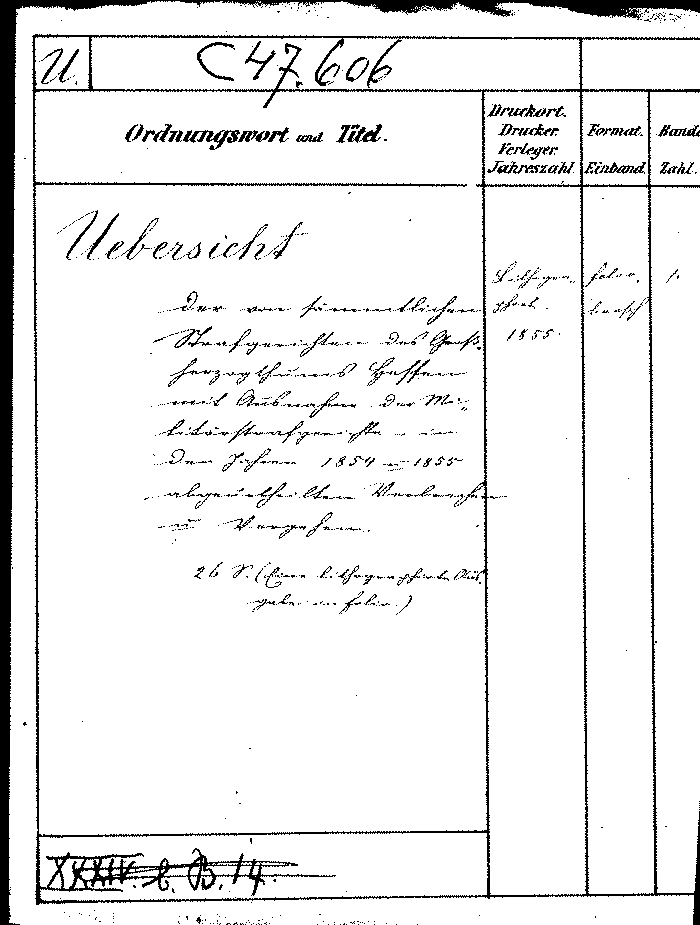 U.
C 47.606
Ordnungswort und Titel.
Druckort.
Drucker.
Verleger.
Jahreszahl.
Format.
Einband.
Bände
Zahl.
Uebersicht
der von sämmtlichen
Strafgerichten des Groß-
herzogthums Hessen
mit Ausnahme der Mi-
litärstrafgerichte - in
den Jahren 1854 u 1855
abgeurtheilten Verbrechen
u Vergehen.
26 S. (Eine lithographirte Aus-
gabe in folio.)
Lithogra-
phirt.
1855.
folio.
brosch
1.
XXXIV. C. B. 14.